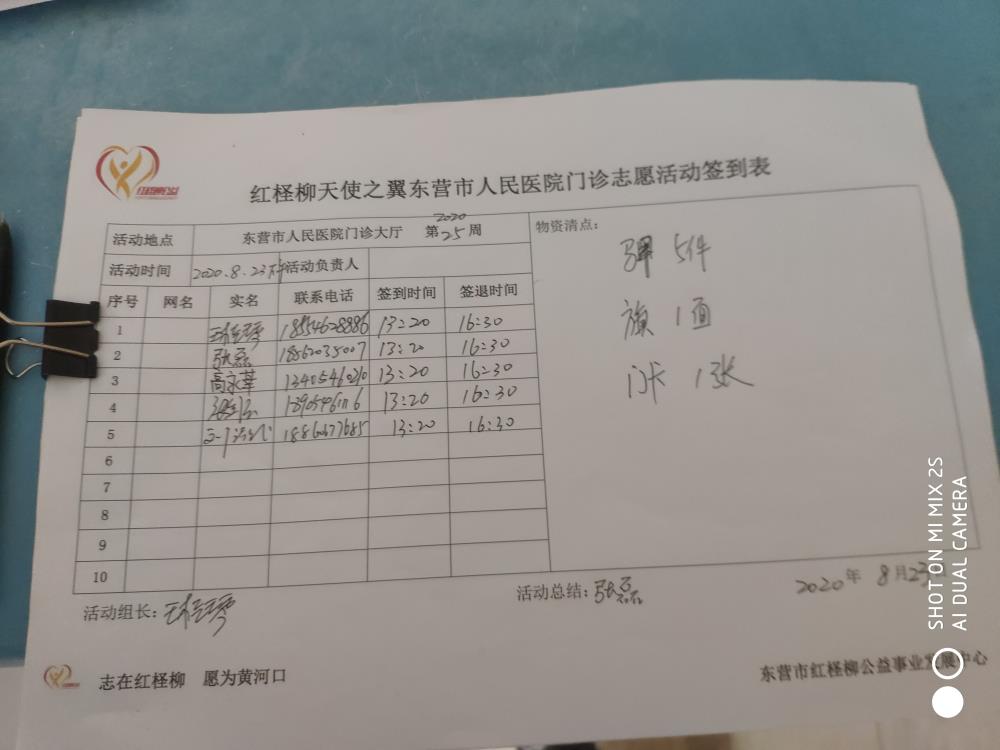 红柽柳天使之翼东营市人民医院门诊志愿活动签到表
活动地点 东营市人民医院门诊大厅 第2020 25周
物资清点:
活动时间 2020.8.23下午 活动负责人
序号 网名 实名 联系电话 签到时间 签退时间
1 18554628886 13:20 16:30
2 张磊 18562035007 13:20 16:30
3 高永革 13:20 16:30
4 13:20 16:30
5 13:20 16:30
6
7
8
9
10
5件
旗 1面
门卡 1张
活动组长:
活动总结: 张磊
2020年 8月23
志在红柽柳 愿为黄河口
东营市红柽柳公益事业发展中心
SHOT ON MI MIX 2S
AI DUAL CAMERA